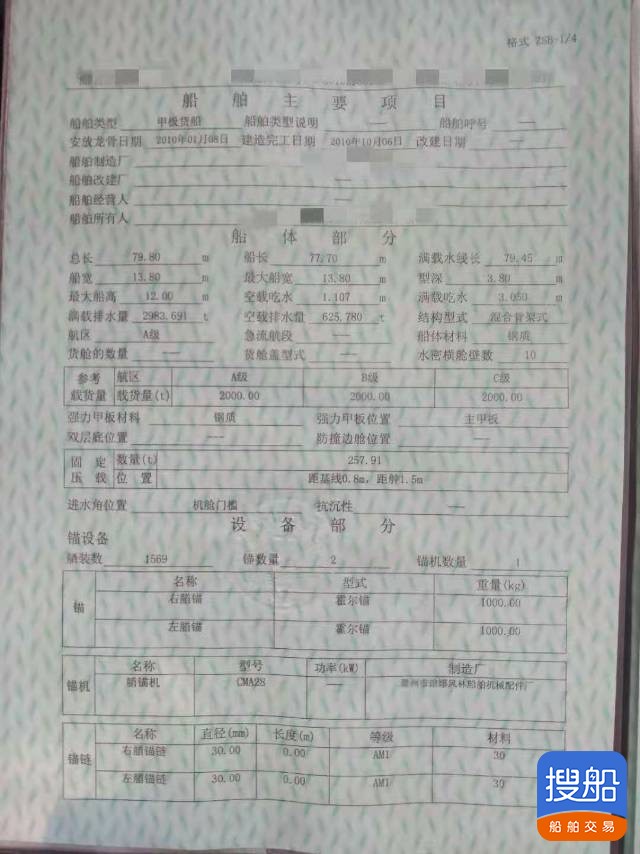 格式 ZSB-1/4
船舶主要项目
船舶类型 甲板货船 船舶类型说明 —— 船舶呼号 ——
安放龙骨日期 2010年01月08日 建造完工日期 2010年10月06日 改建日期 ——
船舶制造厂
船舶改建厂 ——
船舶经营人 ——
船舶所有人
船体部分
总长 79.80 m 船长 77.70 m 满载水线长 79.45 m
船宽 13.80 m 最大船宽 13.80 m 型深 3.80 m
最大船高 12.00 m 空载吃水 1.107 m 满载吃水 3.050 m
满载排水量 2983.691 t 空载排水量 625.780 t 结构型式 混合骨架式
航区 A级 急流航段 —— 船体材料 钢质
货舱的数量 —— 货舱盖型式 —— 水密横舱壁数 10
参考载货量 航区 A级 B级 C级
载货量(t) 2000.00 2000.00 2000.00
强力甲板材料 钢质 强力甲板位置 主甲板
双层底位置 —— 防撞边舱位置 ——
固定压载 数量(t) 257.91
位置 距基线0.8m，距舯1.5m
进水角位置 机舱门槛 抗沉性 ——
设备部分
锚设备
舾装数 1569 锚数量 2 锚机数量 1
锚 名称 型式 重量(kg)
右艏锚 霍尔锚 1000.00
左艏锚 霍尔锚 1000.00
锚机 名称 型号 功率(kW) 制造厂
艏锚机 CMA28 ——
锚链 名称 直径(mm) 长度(m) 等级 材料
右艏锚链 30.00 0.00 AM1 30
左艏锚链 30.00 0.00 AM1 30
搜船
船舶交易